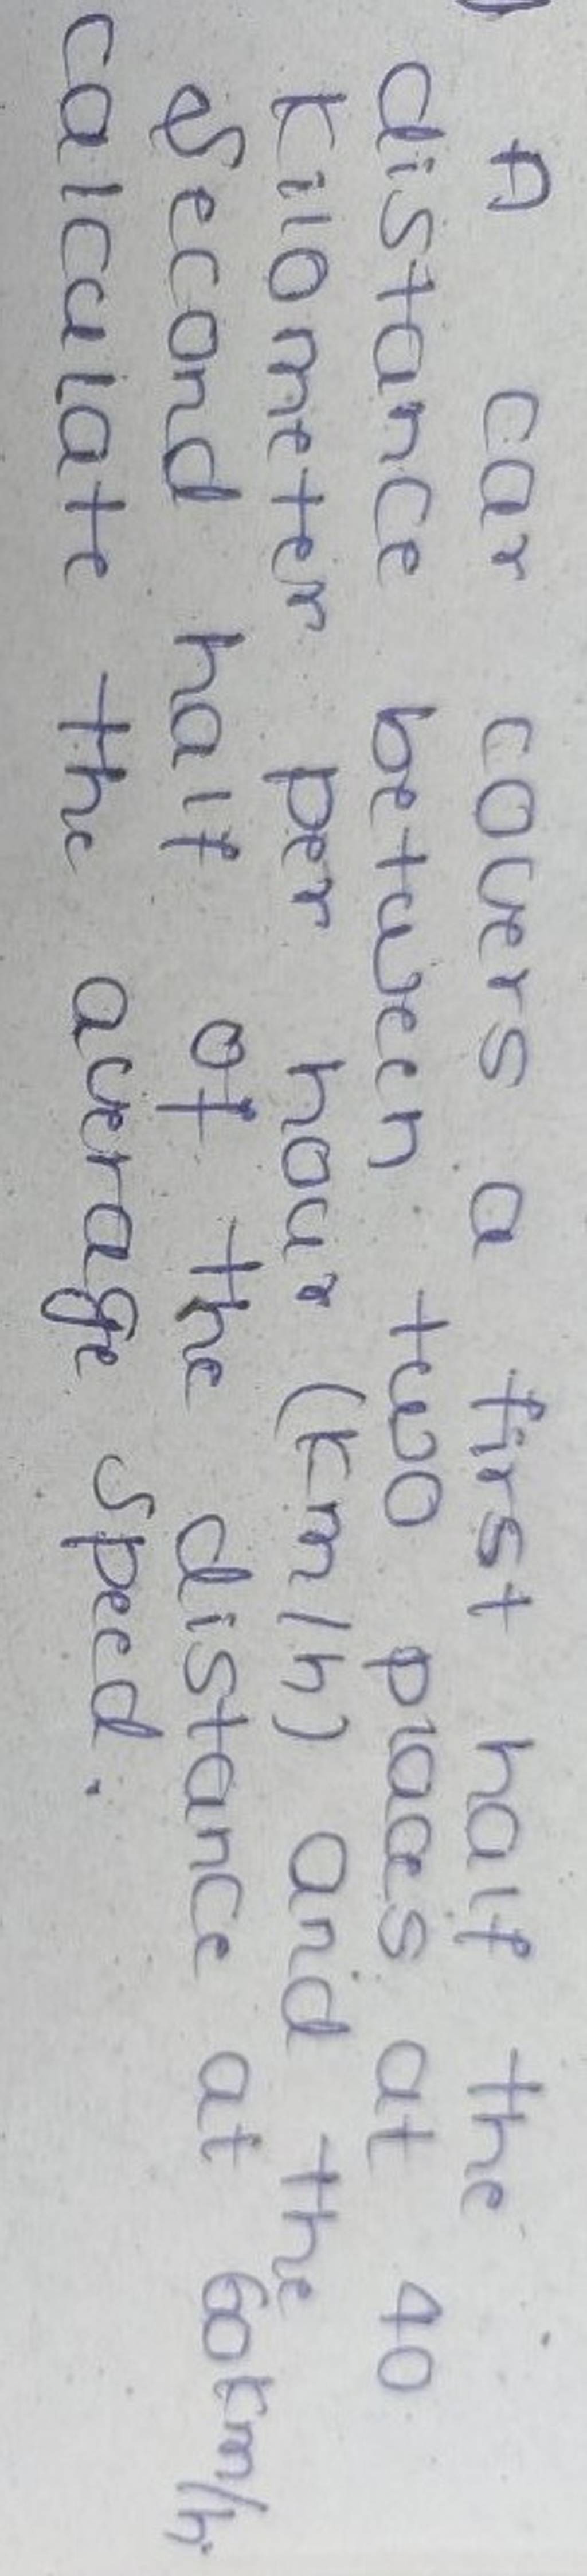 A car covers a first half the
distance between two places at 40
kilometer per hour (km/h) and the
Second half of the distance at 60km/h,
calculate the average speed.